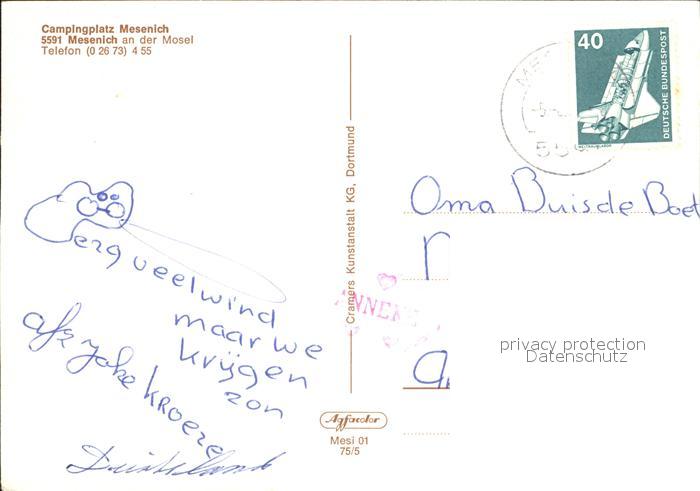 Campingplatz Mesenich
5591 Mesenich an der Mosel
Telefon (0 26 73) 4 55
40
DEUTSCHE BUNDESPOST
WELTRAUMLABOR
Cramers Kunstanstalt KG, Dortmund
Oma Buisde Boet
privacy protection
Datenschutz
erg veel wind
maar we
krijgen
zon
afz yoke kroeze
Duitsland
Agfacolor
Mesi 01
75/5